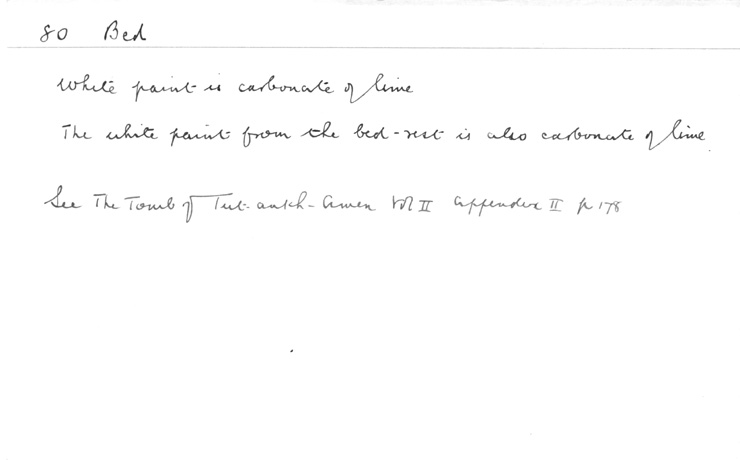 80 Bed
White paint is carbonate of lime
The white paint from the bed-rest is also carbonate of lime.
See The Tomb of Tut-ankh-Amen Vol II Appendix II p 178